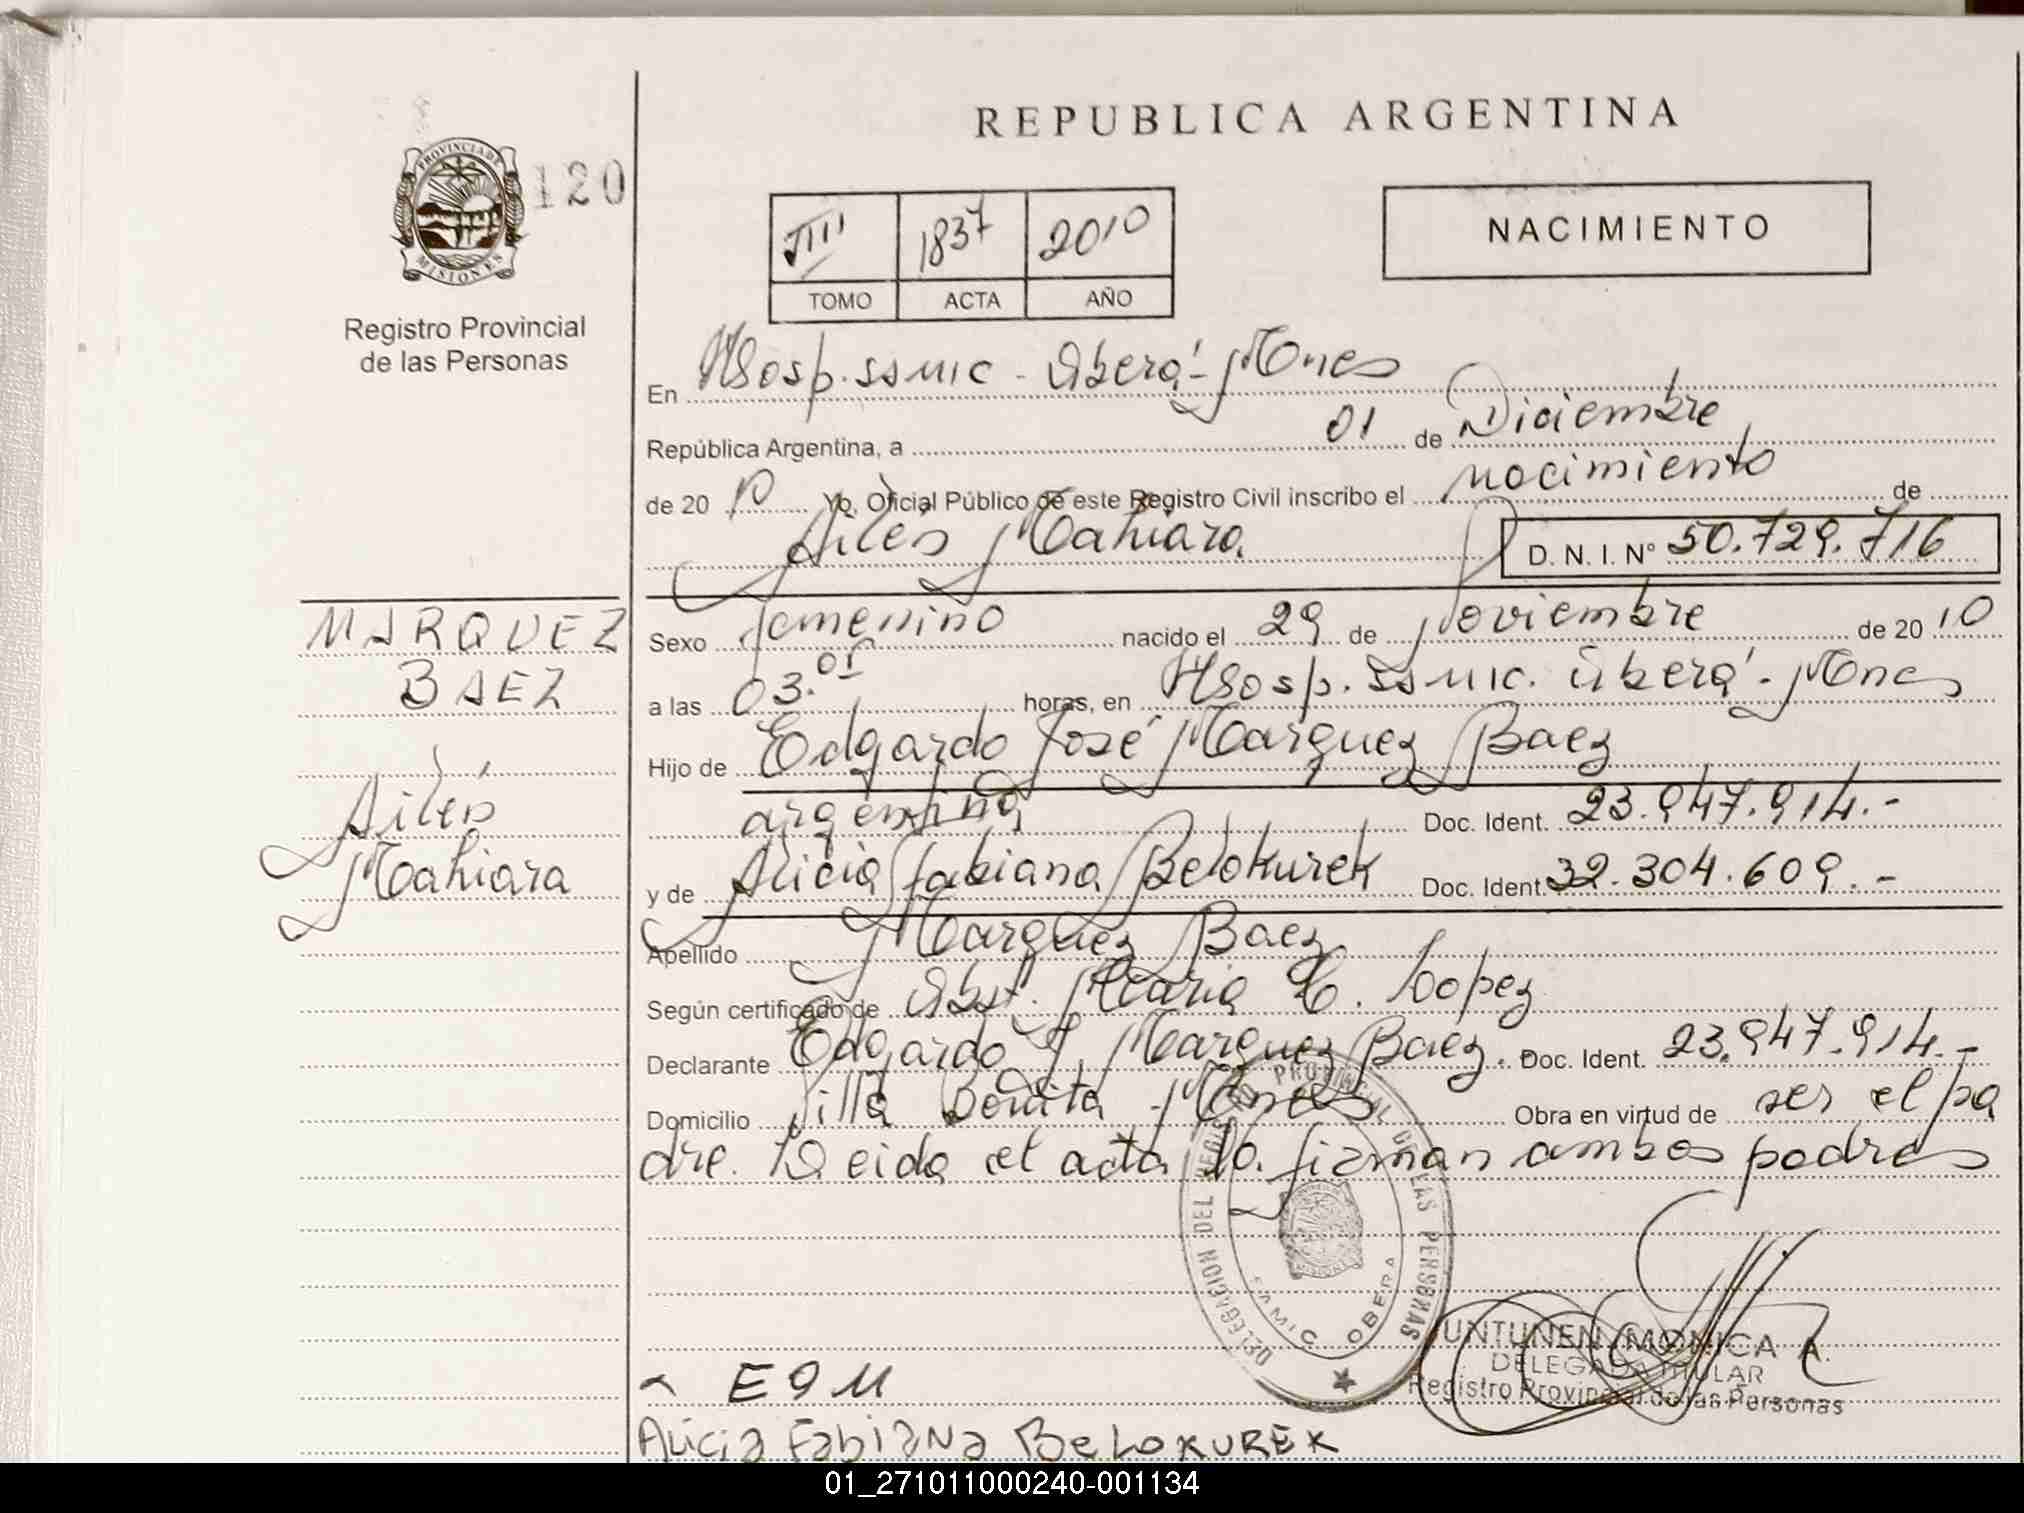 REPUBLICA ARGENTINA
PROVINCIA DE
MISIONES
120
Registro Provincial
de las Personas
VIII 1837 2010
TOMO ACTA AÑO
NACIMIENTO
En Hosp. SAMIC - Oberá - Mnes
República Argentina, a 01 de Diciembre
de 2010 Yo, Oficial Público de este Registro Civil inscribo el nacimiento de
Ailén Nahiara
D. N. I. Nº 50.729.716
MARQUEZ
BAEZ
Ailén
Nahiara
Sexo femenino nacido el 29 de Noviembre de 2010
a las 03.05 horas, en Hosp. SAMIC. Oberá - Mnes
Hijo de Edgardo José Marquez Baez
argentina Doc. Ident. 23.947.914.-
y de Alicia Fabiana Belokurek Doc. Ident. 32.304.609.-
Apellido Marquez Baez
Según certificado de Obst. Maria C. Lopez
Declarante Edgardo J. Marquez Baez. Doc. Ident. 23.947.914.-
Domicilio Villa Bonita - Mnes Obra en virtud de ser el pa
dre. Leida el acta la firman ambos padres
DELEGACION DEL REGISTRO PROVINCIAL DE LAS PERSONAS
SAMIC OBERA
MISIONES
JUNTUNEN MONICA A.
DELEGADA TITULAR
Registro Provincial de las Personas
Alicia Fabiana Belokurek
01_271011000240-001134